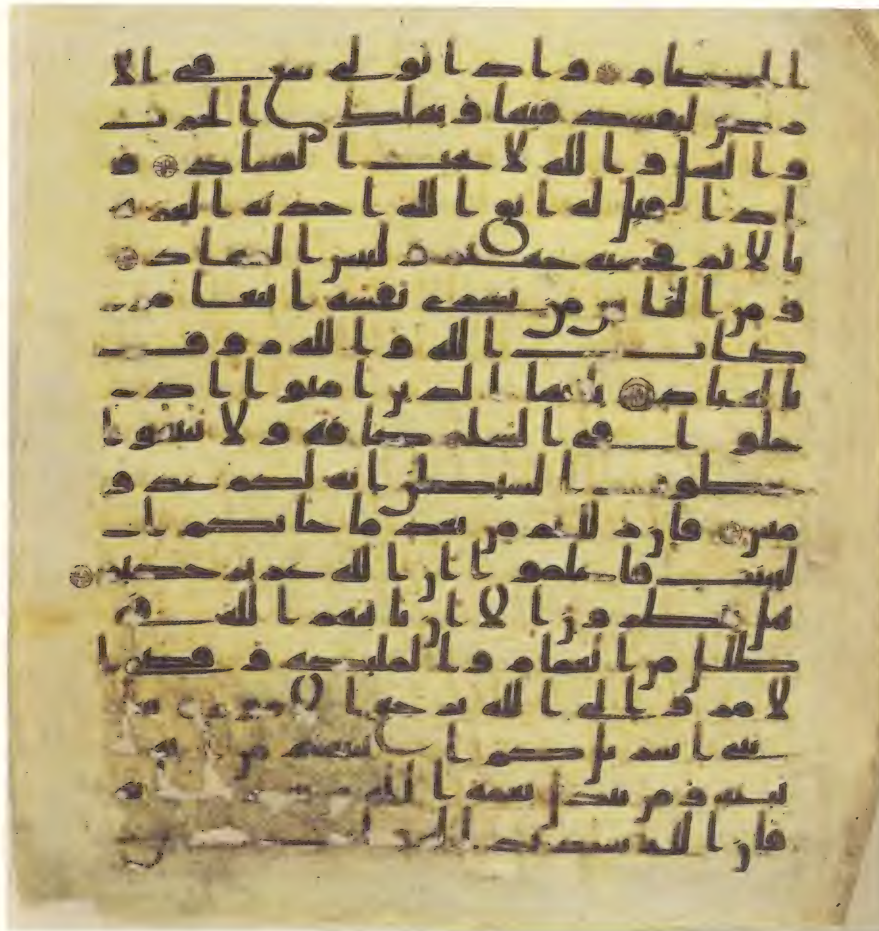 الخصام واذا تولى سعى في الا
رض ليفسد فيها ويهلك الحرث
والنسل والله لا يحب الفساد و
اذا قيل له اتق الله اخذته العزة
بالاثم فحسبه جهنم ولبيس المهاد
ومن الناس من يشري نفسه ابتغا مر
ضات الله والله روف
بالعباد يايها الذين امنوا اد
خلوا في السلم كافة ولا تتبعوا
خطوت الشيطن انه لكم عدو
مبين فان زللتم من بعد ما جاتكم ا
لبينت فاعلموا ان الله عزيز حكيم
هل ينظرون الا ان ياتيهم الله في
ظلل من الغمام والمليكة وقضي ا
لامر والى الله ترجع الامور سل
بني اسريل كم اتينهم من اية
بينة ومن يبدل نعمة الله من
فان الله شديد العقاب